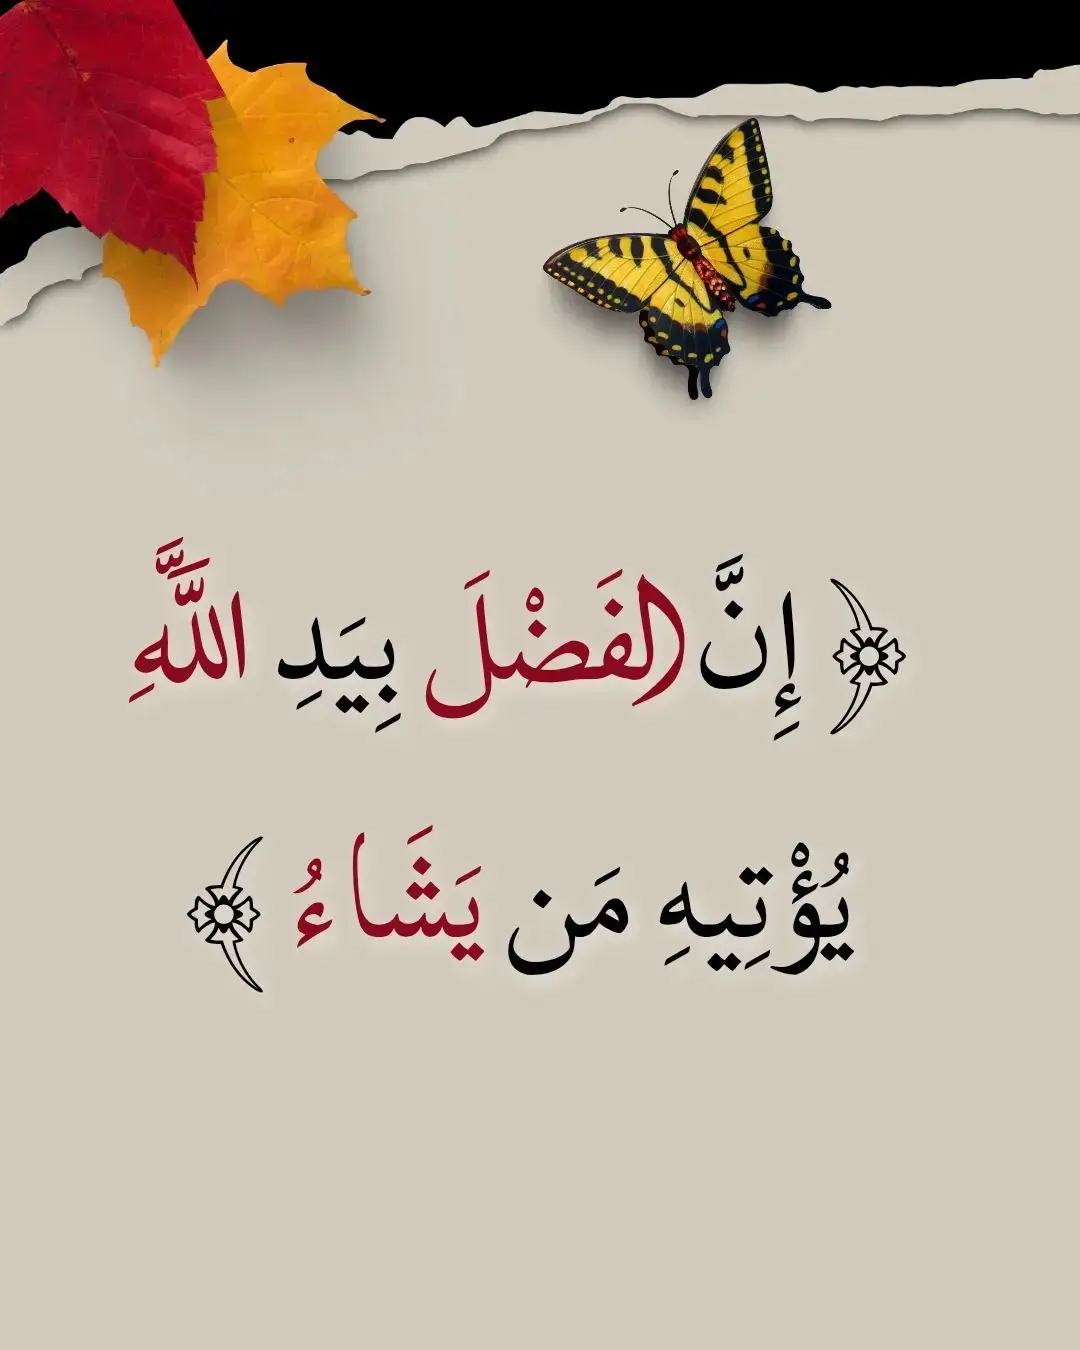 ﴿ إِنَّ الفَضْلَ بِيَدِ اللَّهِ
يُؤْتِيهِ مَن يَشَاءُ ﴾